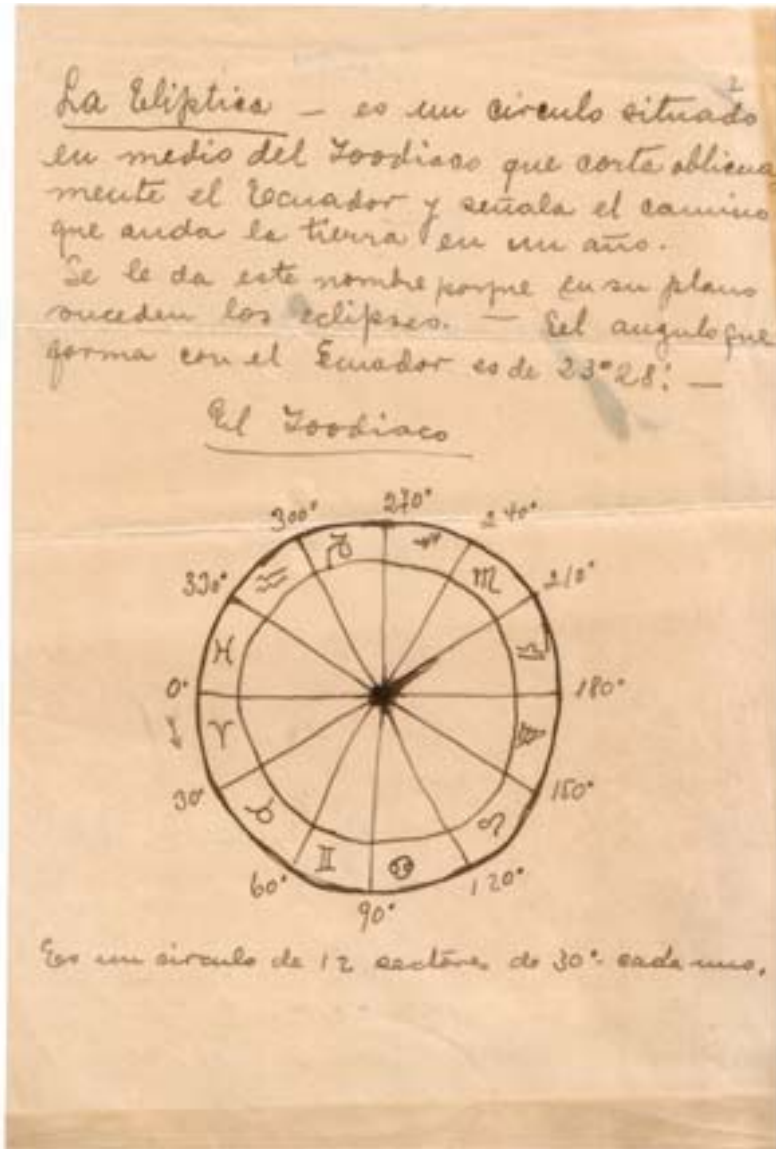 2
La Elíptica — es un círculo situado
en medio del Zoodiaco que corta oblicua
mente el Ecuador y señala el camino
que anda la tierra en un año.
Se le da este nombre porque en su plano
suceden los eclipses. — Eel angulo que
forma con el Ecuador es de 23°28'. —
El Zoodiaco
270°
300° 240°
330° 210°
♒ ♑ ♐ ♏
♓ ♎
0° 180°
♈ ♍
30° 150°
♉ ♊ ♋ ♌
60° 120°
90°
Es un circulo de 12 sectores de 30° cada uno.